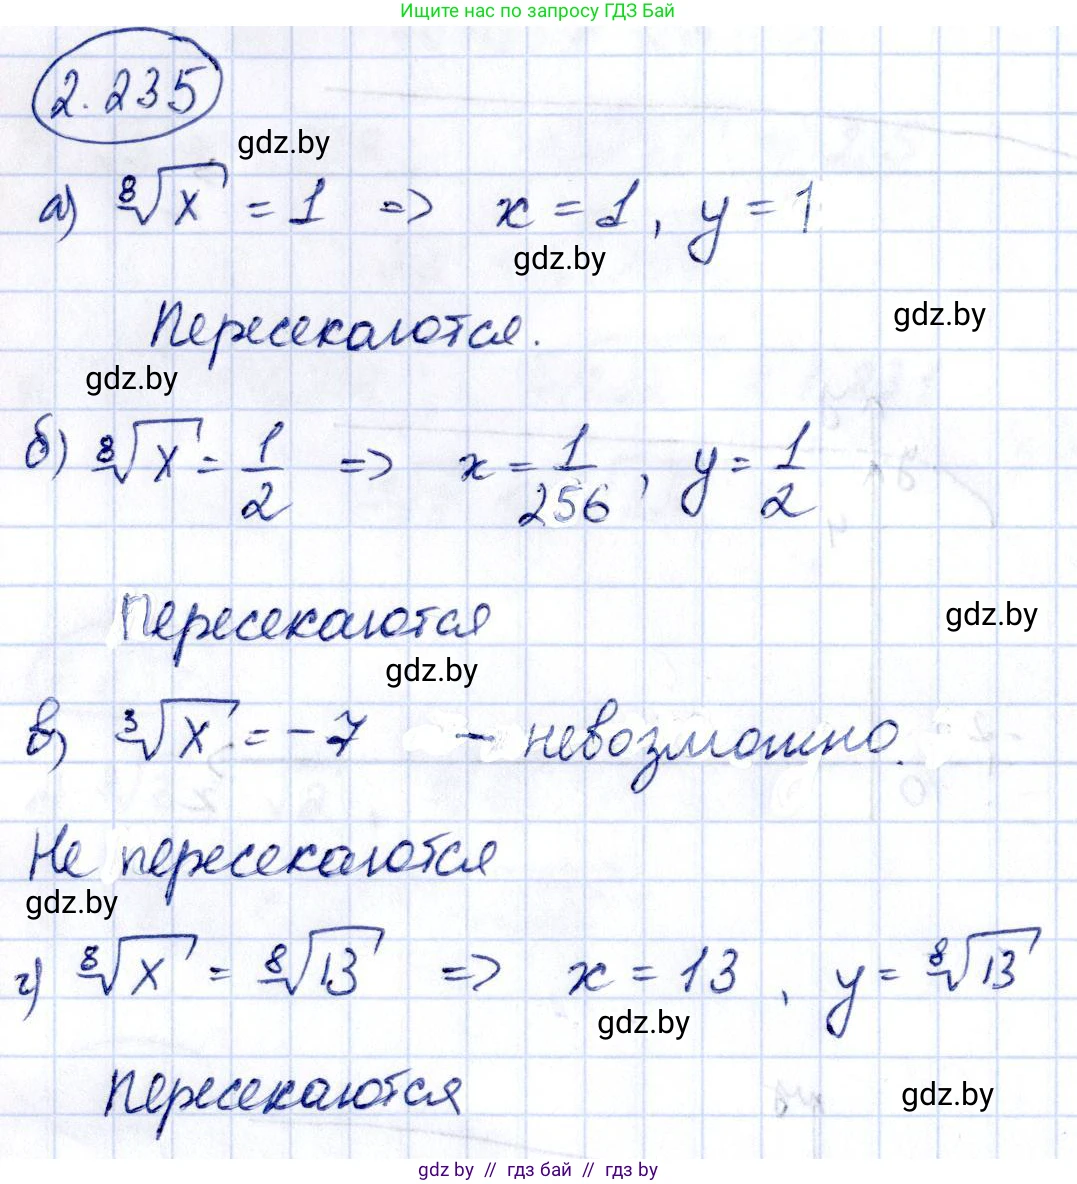 Ищите нас по запросу ГДЗ Бай
2.235
gdz.by
а) ⁸√x = 1 => x = 1, y = 1
gdz.by
Пересекаются.
gdz.by
gdz.by
б) ⁸√x = 1/2 => x = 1/256, y = 1/2
Пересекаются
gdz.by
gdz.by
в) ³√x = -7 - невозможно.
Не пересекаются
gdz.by
г) ⁸√x = ⁸√13 => x = 13, y = ⁸√13
gdz.by
Пересекаются
gdz.by
gdz by // гдз бай // гдз by